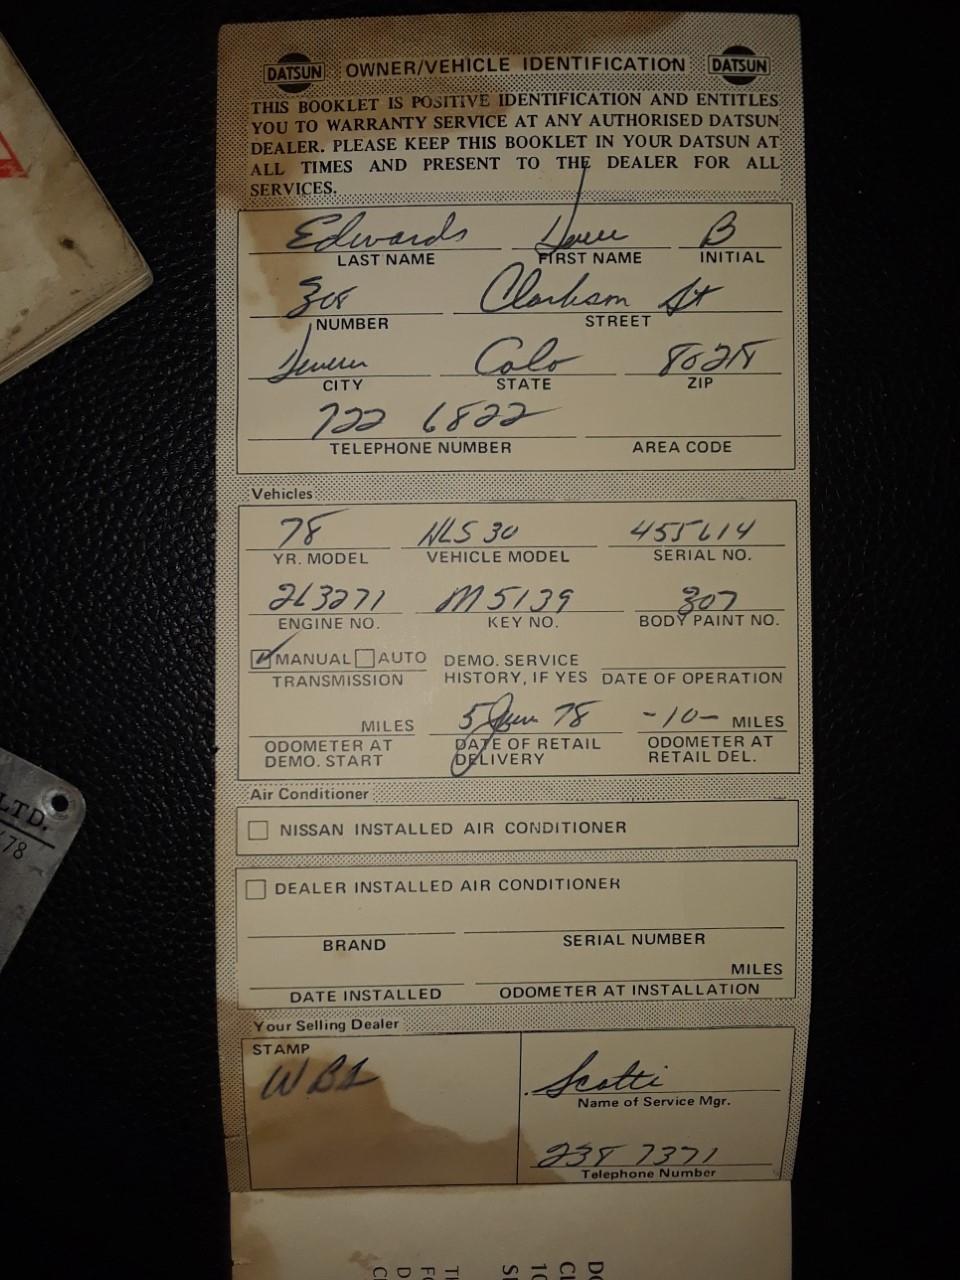 DATSUN OWNER/VEHICLE IDENTIFICATION DATSUN
THIS BOOKLET IS POSITIVE IDENTIFICATION AND ENTITLES
YOU TO WARRANTY SERVICE AT ANY AUTHORISED DATSUN
DEALER. PLEASE KEEP THIS BOOKLET IN YOUR DATSUN AT
ALL TIMES AND PRESENT TO THE DEALER FOR ALL
SERVICES.
Edwards B
LAST NAME FIRST NAME INITIAL
308 Clarkson St
NUMBER STREET
Denver Colo 80218
CITY STATE ZIP
722 6822
TELEPHONE NUMBER AREA CODE
Vehicles
78 HLS 30 455614
YR. MODEL VEHICLE MODEL SERIAL NO.
263271 M5139 307
ENGINE NO. KEY NO. BODY PAINT NO.
MANUAL AUTO DEMO. SERVICE
TRANSMISSION HISTORY, IF YES DATE OF OPERATION
MILES 5 Jun 78 -10- MILES
ODOMETER AT DATE OF RETAIL ODOMETER AT
DEMO. START DELIVERY RETAIL DEL.
Air Conditioner
NISSAN INSTALLED AIR CONDITIONER
DEALER INSTALLED AIR CONDITIONER
BRAND SERIAL NUMBER
MILES
DATE INSTALLED ODOMETER AT INSTALLATION
Your Selling Dealer
STAMP
Scotti
Name of Service Mgr.
238 7371
Telephone Number
LTD.
/78